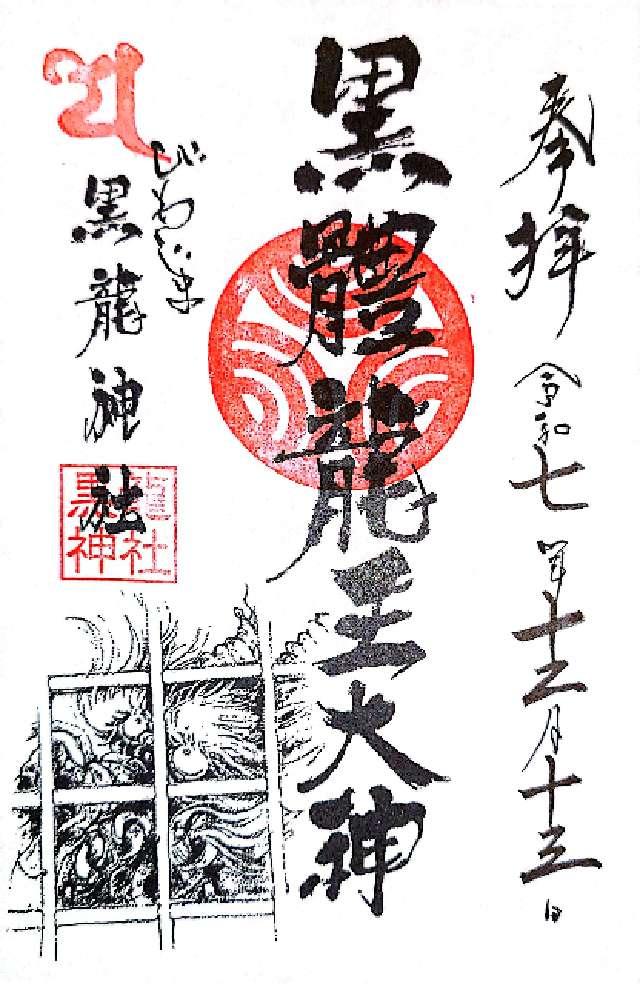 奉拝 令和七年十二月十三日
黒體龍王大神
びわじま
黒龍神社
黒龍神社